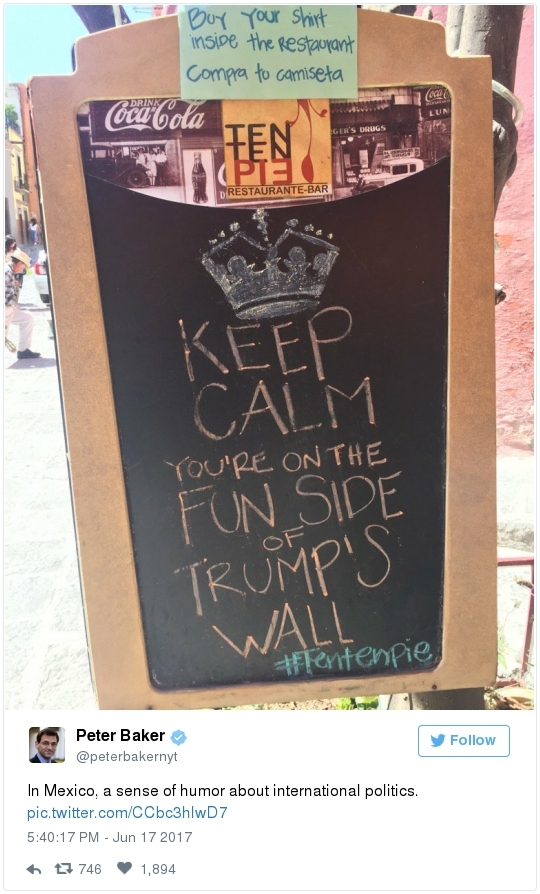 Buy Your Shirt
inside the Restaurant
Compra tu camiseta
DRINK
Coca-Cola
TEN
TEN
PIE
RESTAURANTE-BAR
GER'S DRUGS
Coca-Cola
LUN
KEEP
CALM
YOU'RE ON THE
FUN SIDE
OF
TRUMP'S
WALL
#Tentenpie
Peter Baker
@peterbakernyt
Follow
In Mexico, a sense of humor about international politics.
pic.twitter.com/CCbc3hlwD7
5:40:17 PM - Jun 17 2017
746
1,894